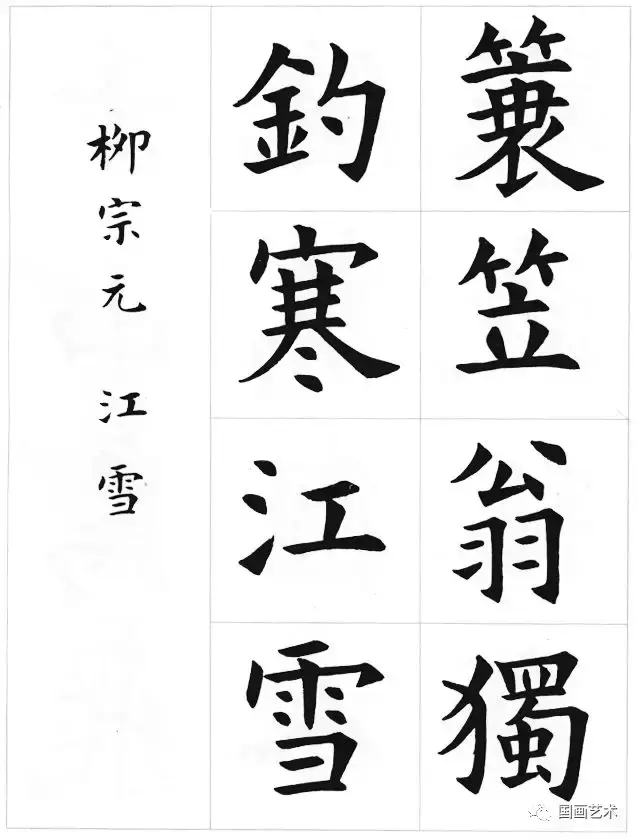 簑笠翁獨
釣寒江雪
柳宗元 江雪
国画艺术